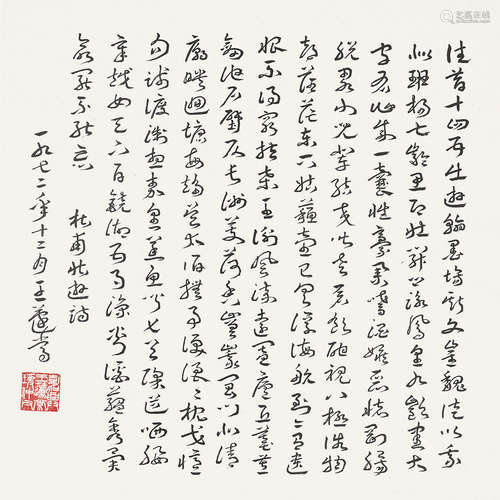 往昔十四五出遊翰墨場斯文崔魏徒以我
似班揚七齡思即壯開口詠鳳皇九齡書大
字有作成一囊性豪業嗜酒嫉惡懷剛腸
脫畧小時輩結交皆老蒼飲酣視八極俗物
都茫茫東下姑蘇臺已具浮海航到今有遺
恨不得窮扶桑王謝風流遠闔廬丘墓荒
劍池石壁仄長洲芰荷香嵯峨閶門北清
廟映迴塘每趨吳太伯撫事淚浪浪枕戈憶
勾踐渡浙想秦皇蒸魚聞匕首除道哂要
章越女天下白鏡湖五月涼剡谿蘊秀異
欲罷不能忘
杜甫壯遊詩
一九七二年十二月王蘧常